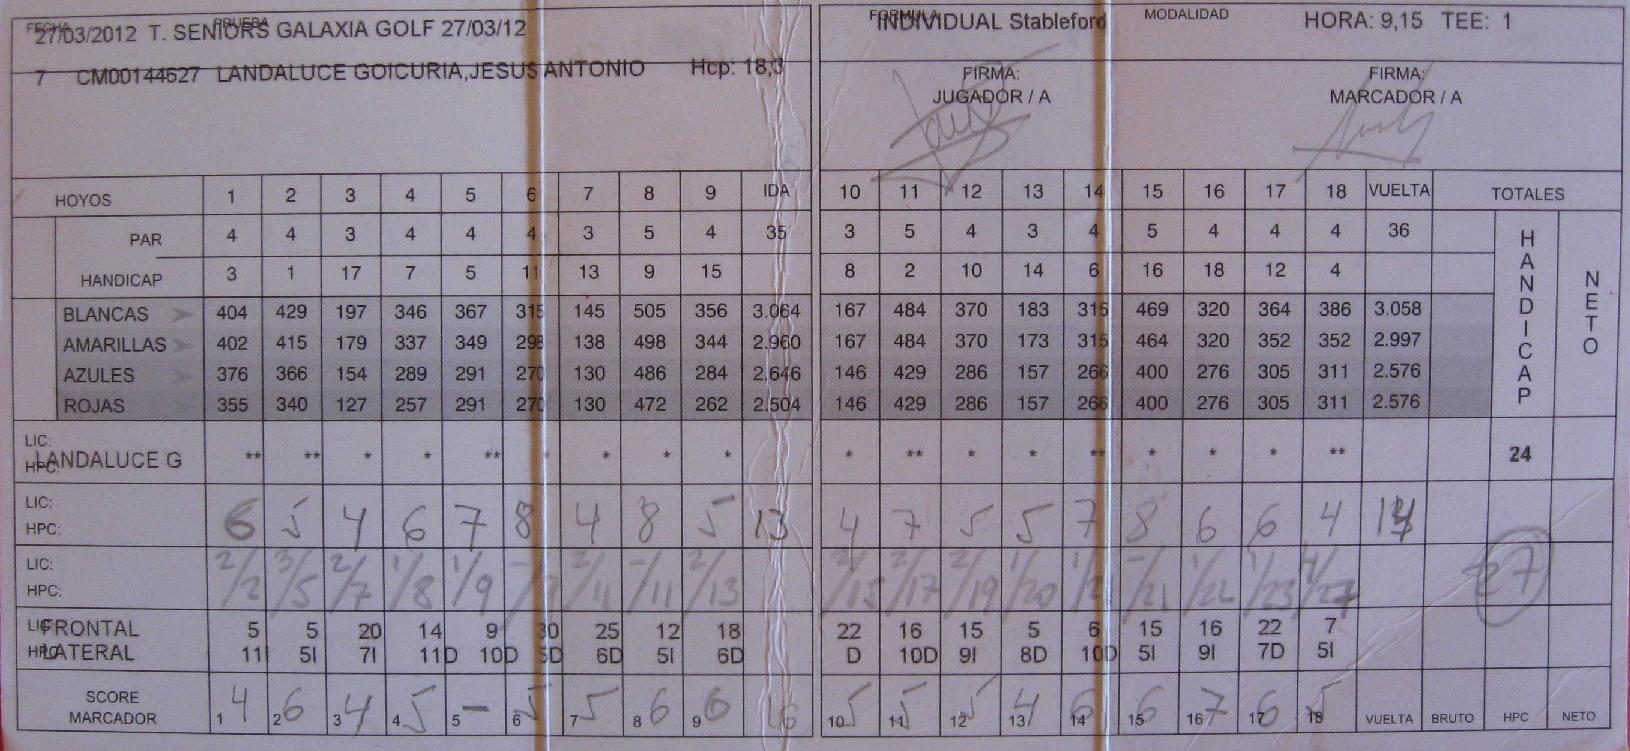 FECHA PRUEBA FORMULA MODALIDAD
27/03/2012 T. SENIORS GALAXIA GOLF 27/03/12 INDIVIDUAL Stableford HORA: 9,15 TEE: 1
7 CM00144627 LANDALUCE GOICURIA,JESUS ANTONIO Hcp: 18,3
FIRMA: JUGADOR / A FIRMA: MARCADOR / A
HOYOS 1 2 3 4 5 6 7 8 9 IDA 10 11 12 13 14 15 16 17 18 VUELTA TOTALES
PAR 4 4 3 4 4 4 3 5 4 35 3 5 4 3 4 5 4 4 4 36
HANDICAP 3 1 17 7 5 11 13 9 15 8 2 10 14 6 16 18 12 4 HANDICAP NETO
BLANCAS 404 429 197 346 367 315 145 505 356 3.064 167 484 370 183 315 469 320 364 386 3.058
AMARILLAS 402 415 179 337 349 298 138 498 344 2.960 167 484 370 173 315 464 320 352 352 2.997
AZULES 376 366 154 289 291 270 130 486 284 2.646 146 429 286 157 266 400 276 305 311 2.576
ROJAS 355 340 127 257 291 270 130 472 262 2.504 146 429 286 157 266 400 276 305 311 2.576
LIC:
HPC:
LANDALUCE G ** ** * * ** * * * * * ** * * ** * * * ** 24
LIC:
HPC: 6 5 4 6 7 8 4 8 5 13 4 7 5 5 7 8 6 6 4 14
LIC:
HPC: 2/2 3/5 2/7 1/8 1/9 -/9 2/11 -/11 2/13 2/15 2/17 2/19 1/20 1/21 -/21 1/22 1/23 4/27 27
LIC:
FRONTAL 5 5 20 14 9 30 25 12 18 22 16 15 5 6 15 16 22 7
HPC:
LATERAL 11I 5I 7I 11D 10D 5D 6D 5I 6D D 10D 9I 8D 10D 5I 9I 7D 5I
SCORE MARCADOR 4 6 4 5 - 5 5 6 6 16 5 5 5 4 6 6 7 6 5
1 2 3 4 5 6 7 8 9 10 11 12 13 14 15 16 17 18 VUELTA BRUTO HPC NETO